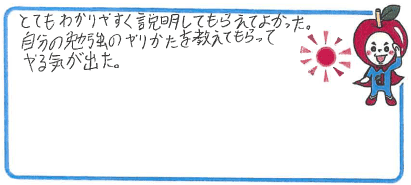 とてもわかりやすく説明してもらえてよかった。
自分の勉強のやりかたを教えてもらって
やる気が出た。